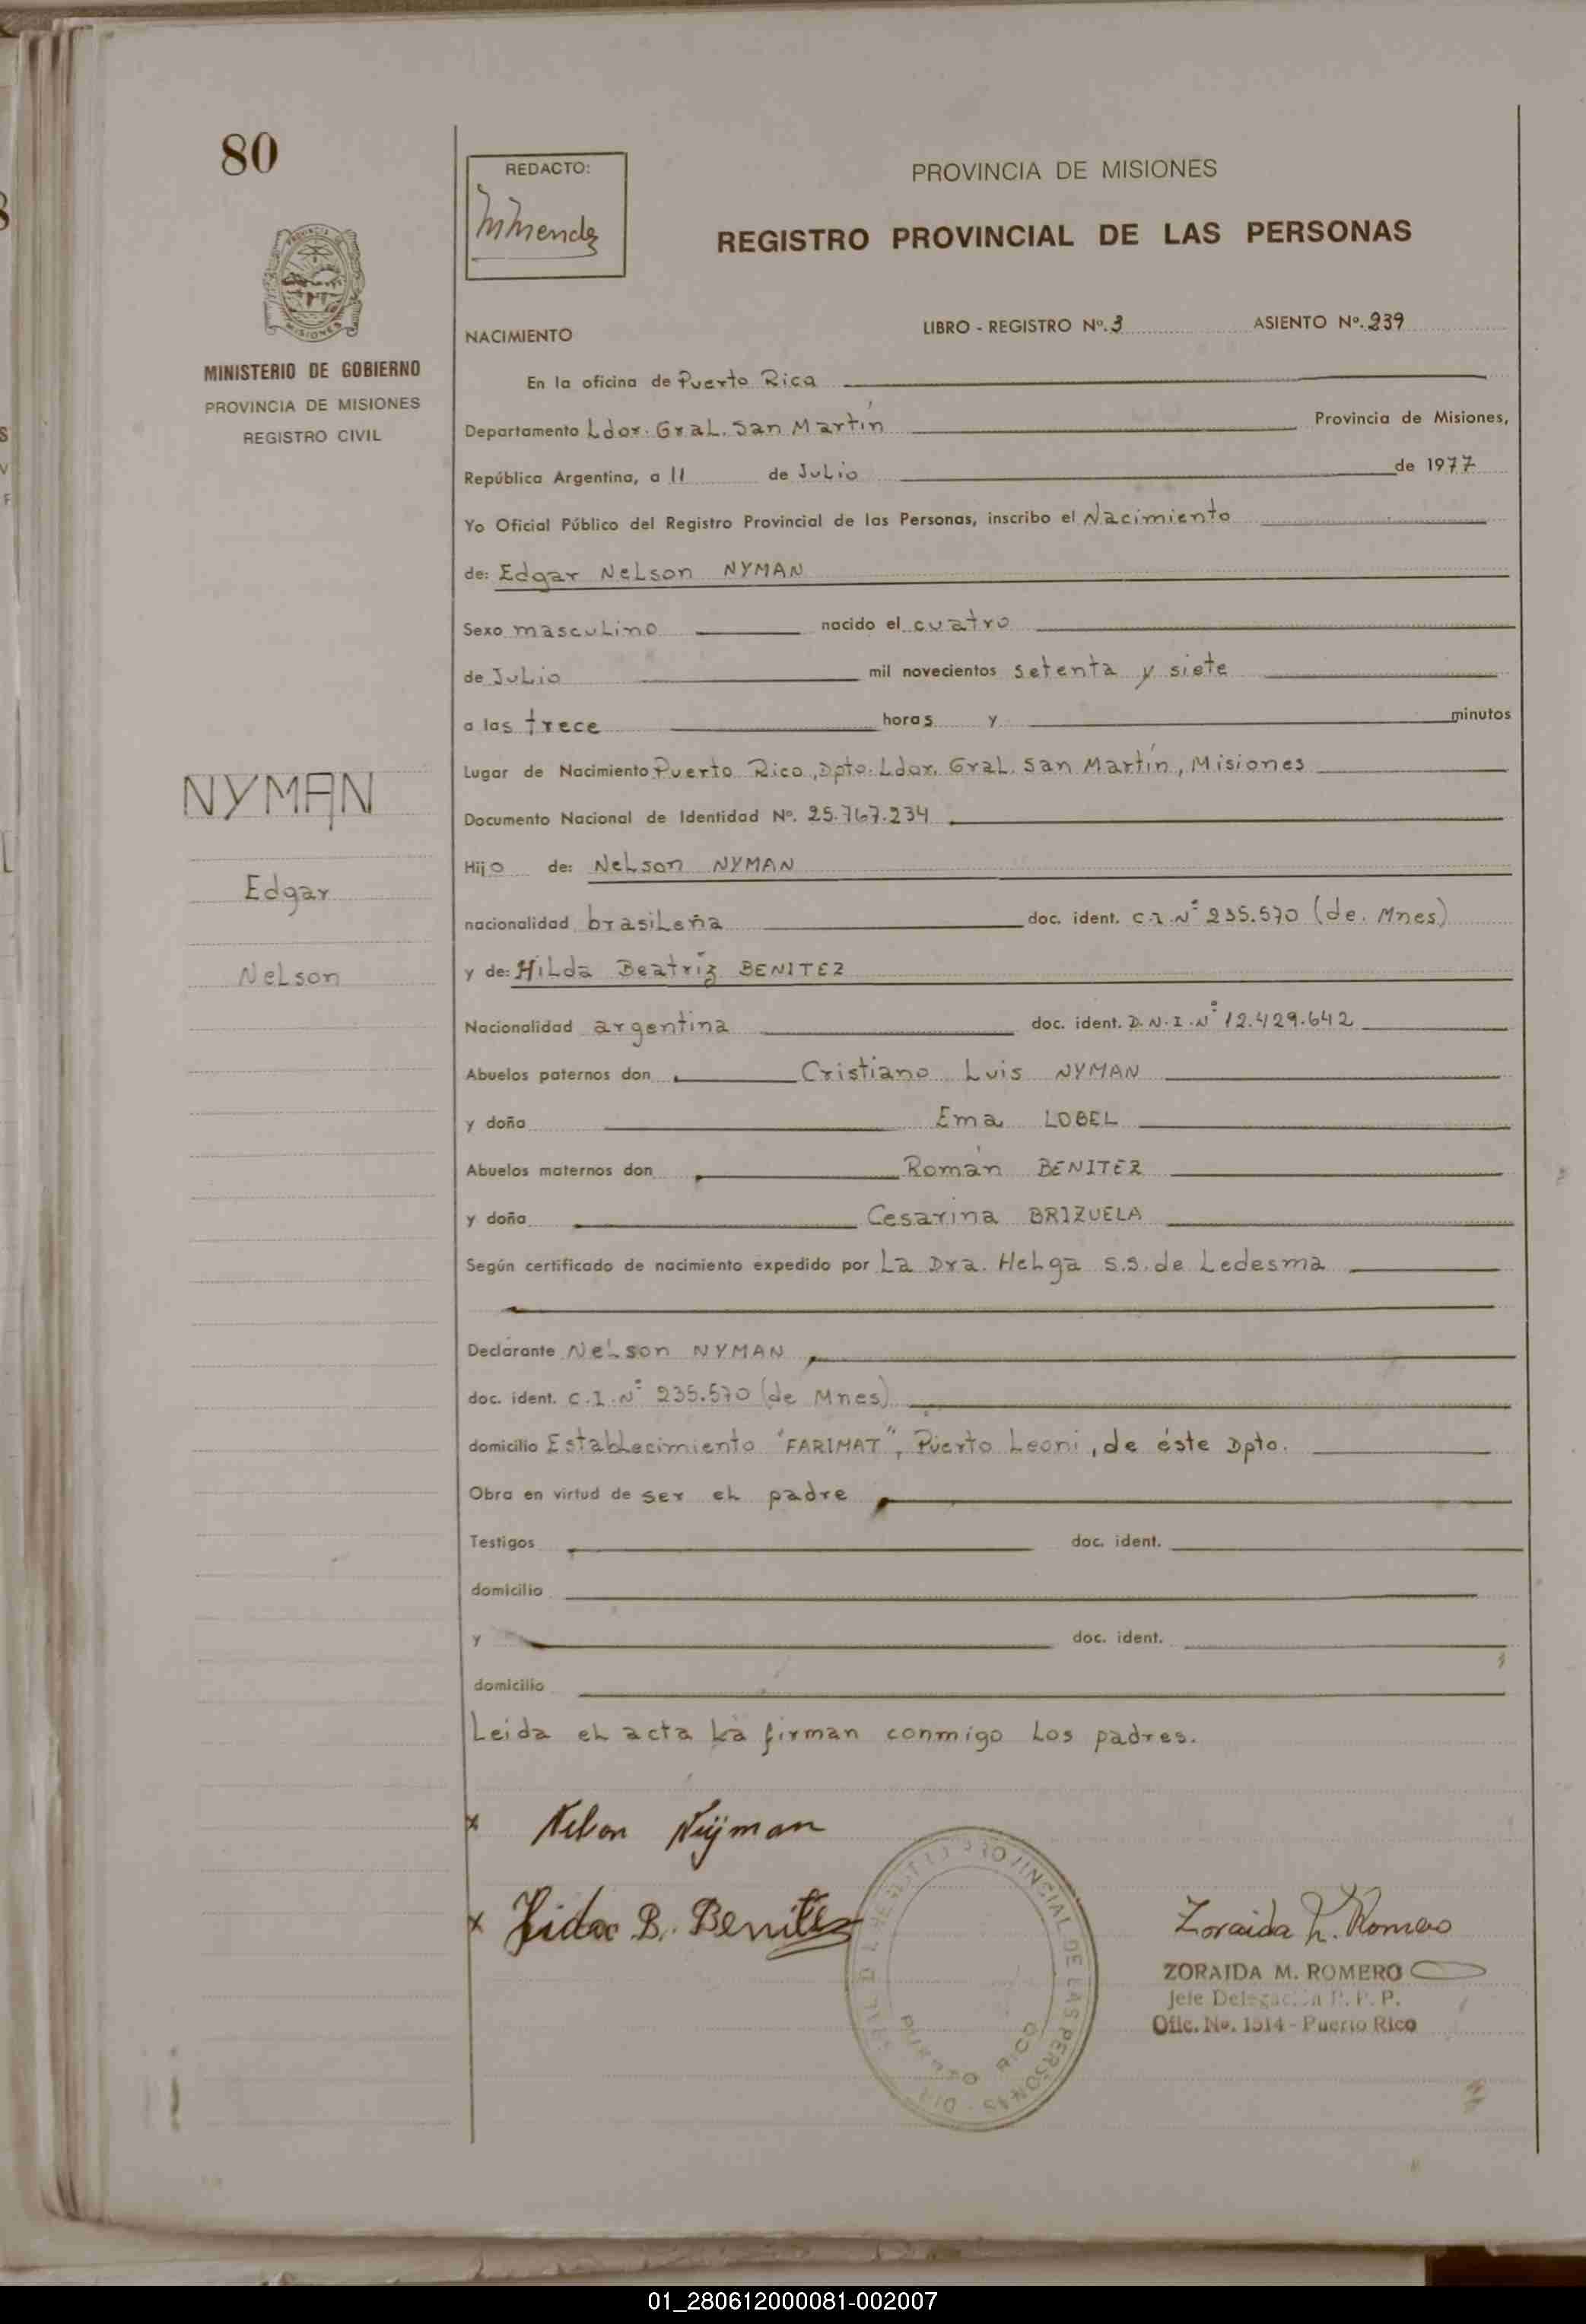 80
REDACTO:
PROVINCIA DE MISIONES
REGISTRO PROVINCIAL DE LAS PERSONAS
MISIONES
MINISTERIO DE GOBIERNO
PROVINCIA DE MISIONES
REGISTRO CIVIL
NACIMIENTO LIBRO - REGISTRO Nº. 3 ASIENTO Nº. 239
En la oficina de Puerto Rica
Departamento Ldor. Gral. San Martín Provincia de Misiones,
República Argentina, a 11 de Julio de 1977
Yo Oficial Público del Registro Provincial de las Personas, inscribo el Nacimiento
de: Edgar Nelson NYMAN
Sexo masculino nacido el cuatro
de Julio mil novecientos setenta y siete
a las trece horas y minutos
Lugar de Nacimiento Puerto Rico, Dpto. Ldor. Gral. San Martín, Misiones
NYMAN
Edgar
Nelson
Documento Nacional de Identidad Nº. 25.767.234
Hijo de: Nelson NYMAN
nacionalidad brasileña doc. ident. C.I.Nº 235.570 (de. Mnes)
y de: Hilda Beatríz BENITEZ
Nacionalidad argentina doc. ident. D.N.I.Nº 12.429.642
Abuelos paternos don Cristiano Luis NYMAN
y doña Ema LOBEL
Abuelos maternos don Román BENITEZ
y doña Cesarina BRIZUELA
Según certificado de nacimiento expedido por La Dra. Helga S.S. de Ledesma
Declarante Nelson NYMAN
doc. ident. C.I.Nº 235.570 (de Mnes)
domicilio Establecimiento "FARIMAT", Puerto Leoni, de éste Dpto.
Obra en virtud de ser el padre
Testigos doc. ident.
domicilio
y doc. ident.
domicilio
Leida el acta la firman conmigo los padres.
x Nelson Nyman
x Hilda B. Benitez
PROVINCIAL DE LAS PERSONAS
PUERTO RICO
Zoraida M. Romero
ZORAIDA M. ROMERO
Jefe Delegación R. P. P.
Ofic. No. 1514 - Puerto Rico
01_280612000081-002007